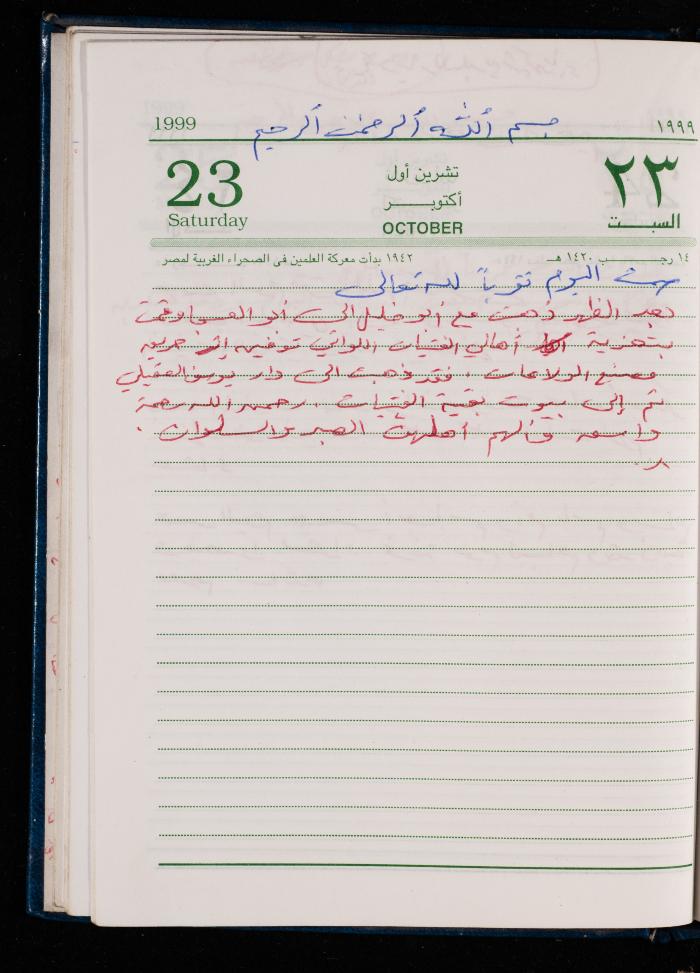 بسم الله الرحمن الرحيم
1999 ١٩٩٩
23 تشرين أول ٢٣
Saturday أكتوبـــر السبـــت
OCTOBER
١٤ رجـــــب ١٤٢٠ هـ ١٩٤٢ بدأت معركة العلمين فى الصحراء الغربية لمصر
صمت اليوم تقرباً لله تعالى
بعد الظهر ذهبت مع أبو خليل الى أبو العسجا وقمت
بتعزية أهالي الفتيات اللواتي توفين إثر حريق
مصنع الولاعات . فقد ذهبت الى دار يوسف العقيلي
ثم إلى بيوت بقية الفتيات . رحمهن الله رحمة
واسعة وألهم أهلهن الصبر والسلوان .